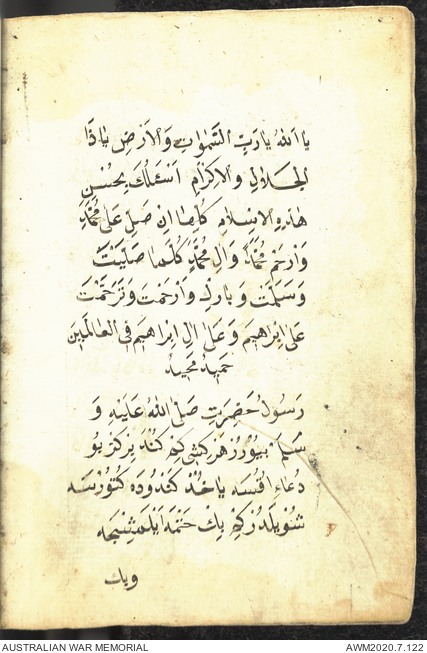 يا اَللهُ يَا رَبَّ السَّمٰوَاتِ وَالْاَرْضِ يَا ذَا
الْجَلَالِ وَالْاِكْرَامِ اَسْئَلُكَ بِحُسْنِ
هٰذِهِ الْاَسْمَاءِ كُلِّهَا اِنْ صَلِّ عَلٰى مُحَمَّدٍ
وَارْحَمْ مُحَمَّدًا وَاٰلِ مُحَمَّدٍ كَمَا صَلَّيْتَ
وَسَلَّمْتَ وَبَارَكْتَ وَارْحَمْتَ وَتَرَحَّمْتَ
عَلٰى اِبْرَاهِيمَ وَعَلٰى اٰلِ اِبْرَاهِيمَ فِى الْعَالَمِينَ
حَمِيدٌ مَجِيدٌ
رَسُولْ حَضْرَتِ صَلَّى اللهُ عَلَيْهِ وَ
سَلَّمْ بيُورُرْ هَرْ كِشِى كِمْ كُنْدَ بِرْ كَزْ بُو
دُعَاءِ اقُسَه يَاخُدْ كَنْدُودَه كُتُورْسَه
شُويْلَدُرْ كِمْ بِكْ خَتْمَه
وبك
AUSTRALIAN WAR MEMORIAL
AWM2020.7.122